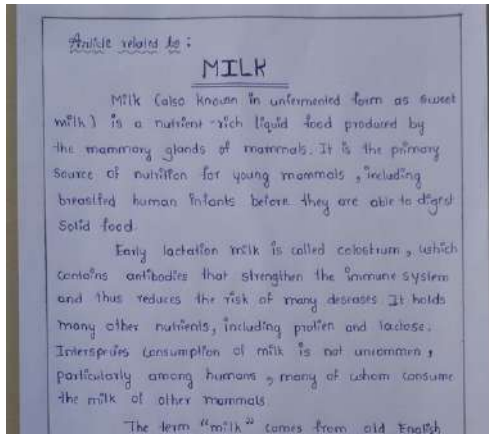 Article related to :
MILK
Milk (also known in unfermented form as sweet
milk) is a nutrient-rich liquid food produced by
the mammary glands of mammals. It is the primary
source of nutrition for young mammals, including
breastfed human infants before they are able to digest
solid food.
Early lactation milk is called colostrum, which
contains antibodies that strengthen the immune system
and thus reduces the risk of many deseases. It holds
many other nutrients, including protien and lactose.
Interspecies consumption of milk is not uncommon,
particularly among humans, many of whom consume
the milk of other mammals.
The term "milk" comes from old English